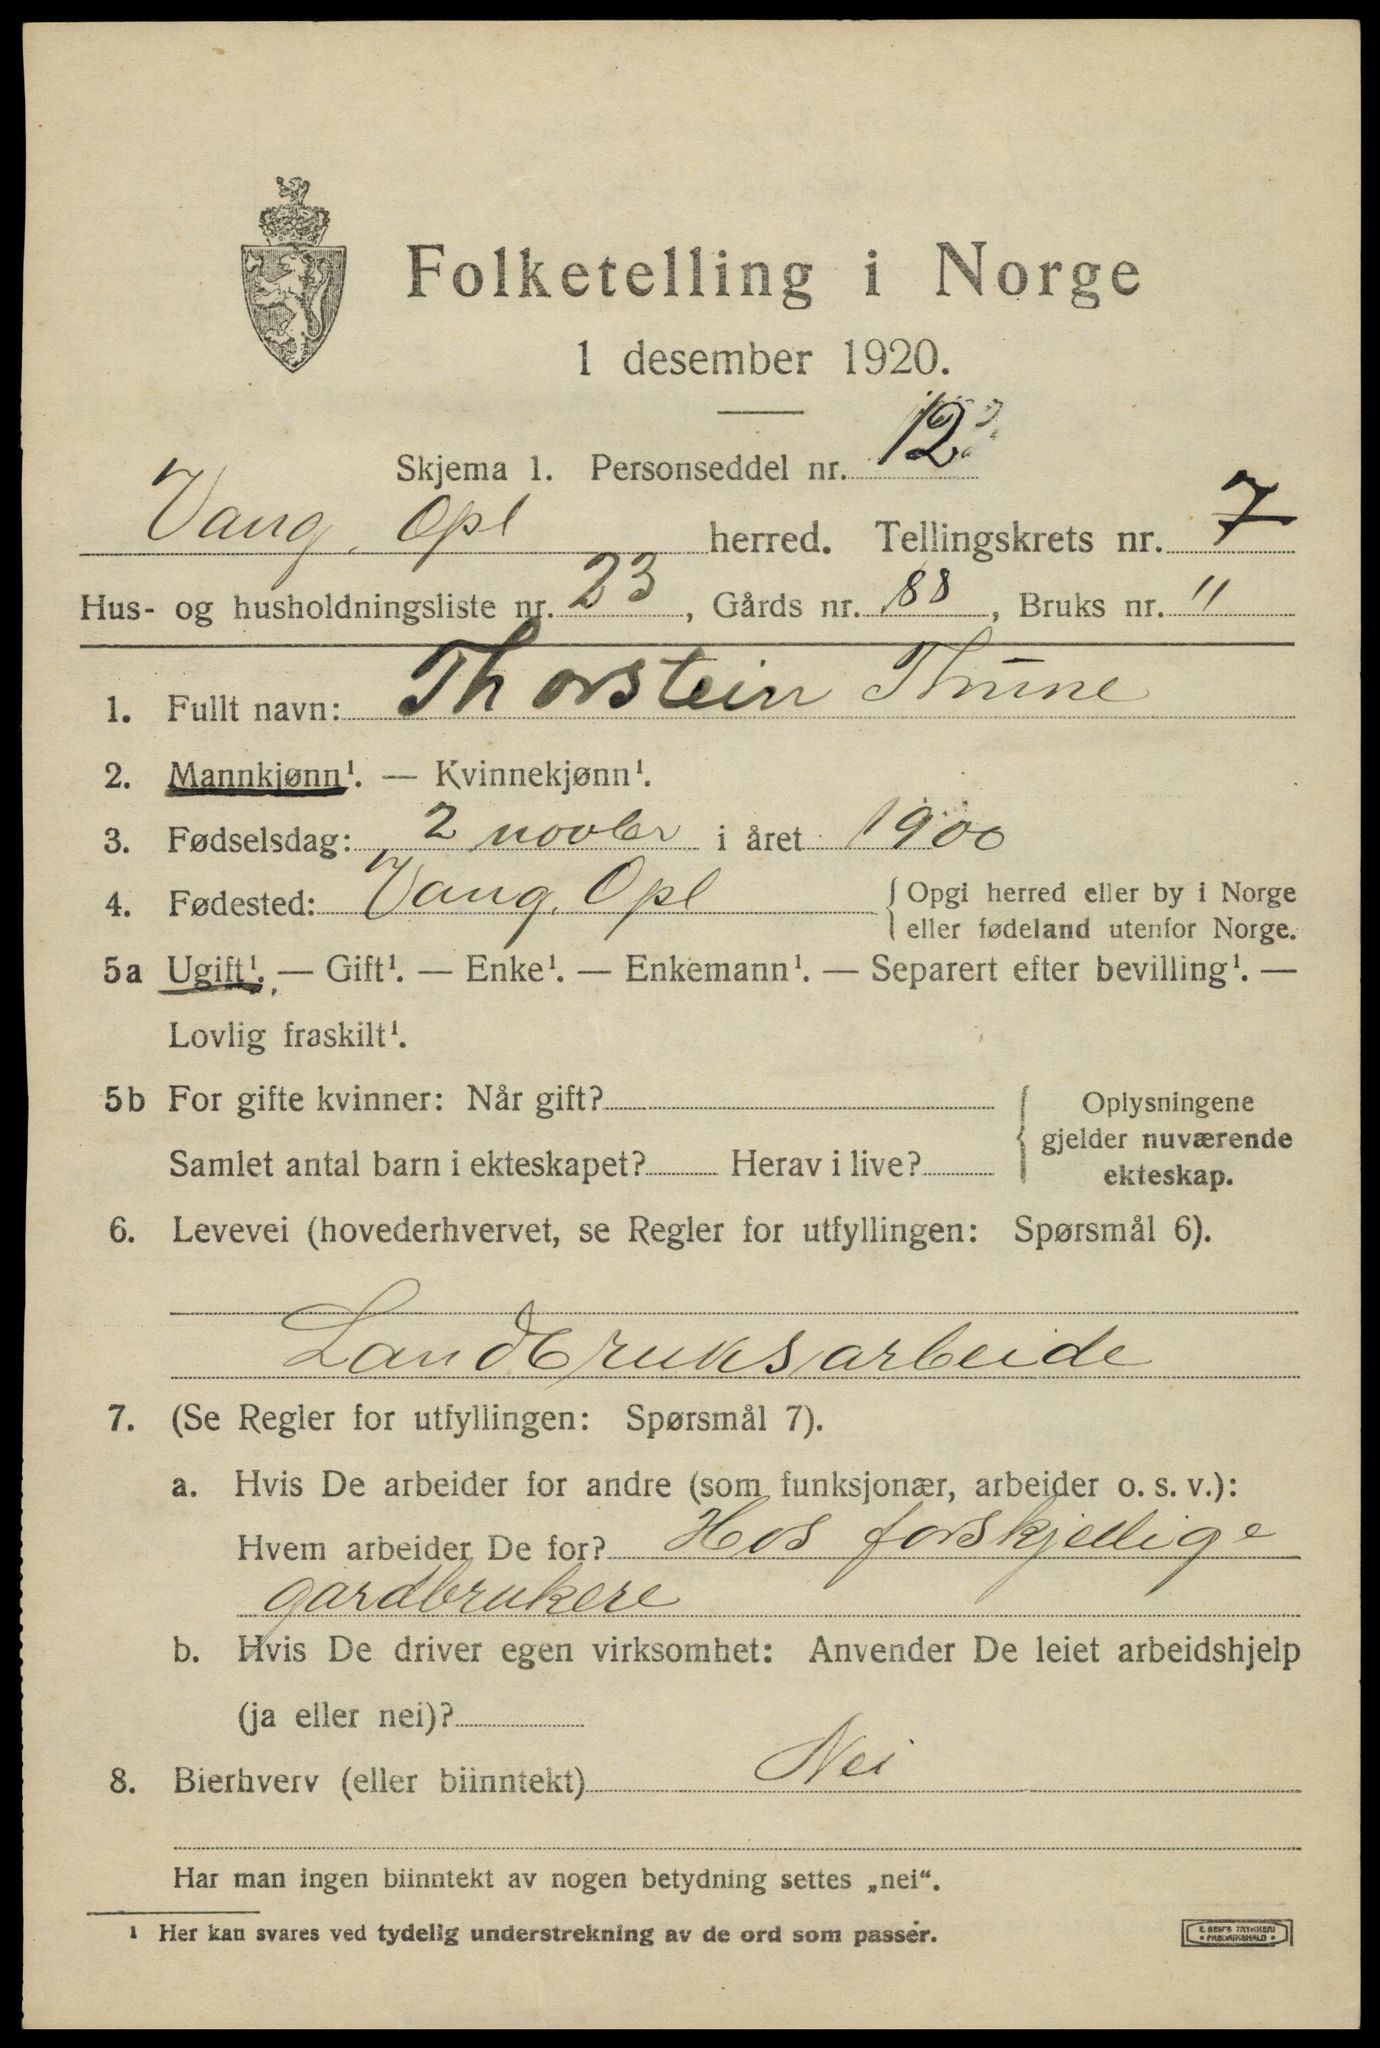 Folketelling i Norge
1 desember 1920.
Skjema 1. Personseddel nr. 12
Vang, Opl herred. Tellingskrets nr. 7
Hus- og husholdningsliste nr. 23, Gårds nr. 88, Bruks nr. "
1. Fullt navn: Thorstein Thune
2. Mannkjønn¹. — Kvinnekjønn¹.
3. Fødselsdag: 2 novbr i året 1900
4. Fødested: Vang, Opl { Opgi herred eller by i Norge
eller fødeland utenfor Norge.
5a Ugift¹. — Gift¹. — Enke¹. — Enkemann¹. — Separert efter bevilling¹. —
Lovlig fraskilt¹.
5b For gifte kvinner: Når gift?
Samlet antal barn i ekteskapet? Herav i live?
Oplysningene
gjelder nuværende
ekteskap.
6. Levevei (hovederhvervet, se Regler for utfyllingen: Spørsmål 6).
Landbruksarbeide
7. (Se Regler for utfyllingen: Spørsmål 7).
a. Hvis De arbeider for andre (som funksjonær, arbeider o. s. v.):
Hvem arbeider De for? Hos forskjellige
gardbrukere
b. Hvis De driver egen virksomhet: Anvender De leiet arbeidshjelp
(ja eller nei)?
8. Bierhverv (eller biinntekt) Nei
Har man ingen biinntekt av nogen betydning settes „nei“.
¹ Her kan svares ved tydelig understrekning av de ord som passer.
E. SEM'S TRYKKERI
FREDRIKSHALD